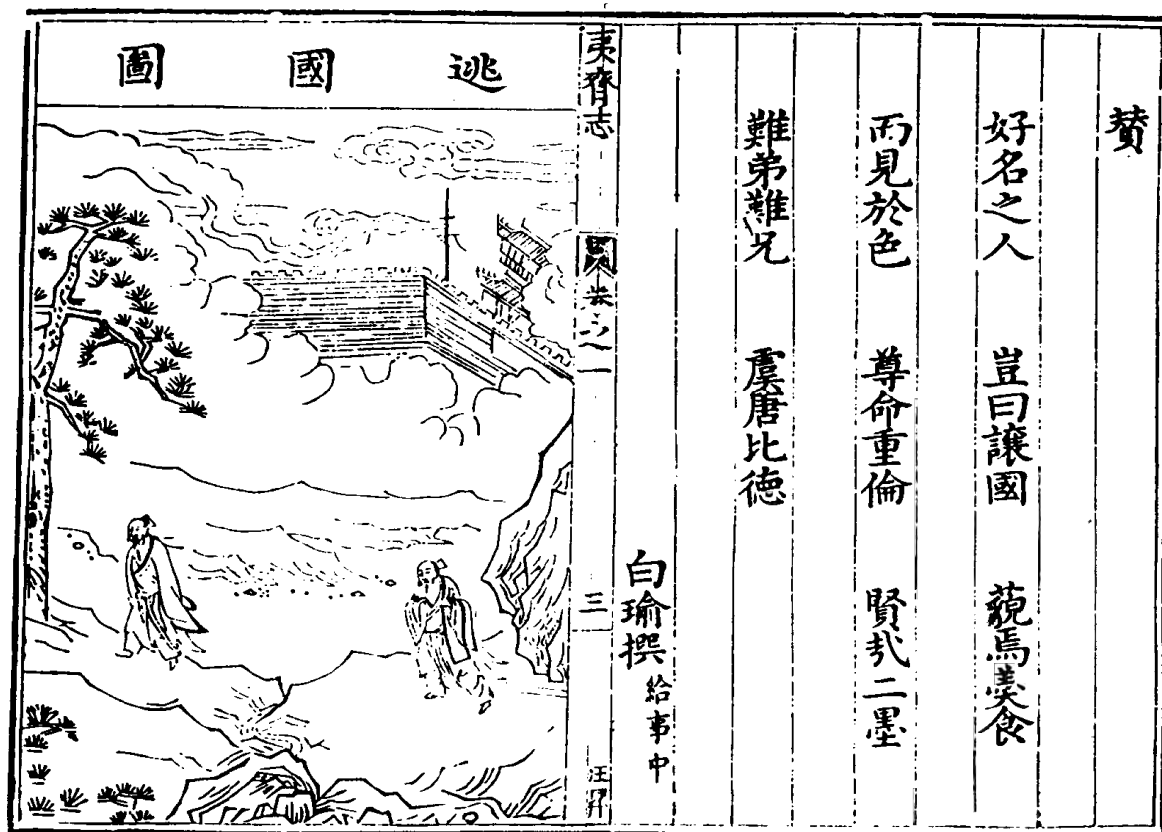 賛
好名之人　豈曰讓國　藐焉羹食
而見於色　尊命重倫　賢哉二墨
難弟難兄　虞唐比德
白瑜撰 給事中
夷齊志
卷之一
三
汪昇
逃國圖